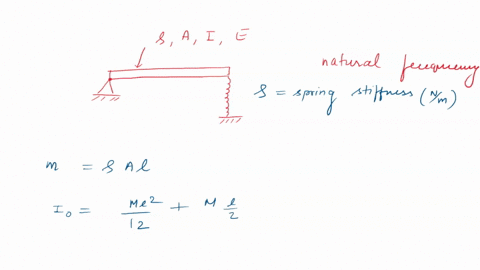 S, A, I, E
natural frequency
S = spring stiffness (N/m)
m = S A l
I₀ = Ml²/12 + M l/2